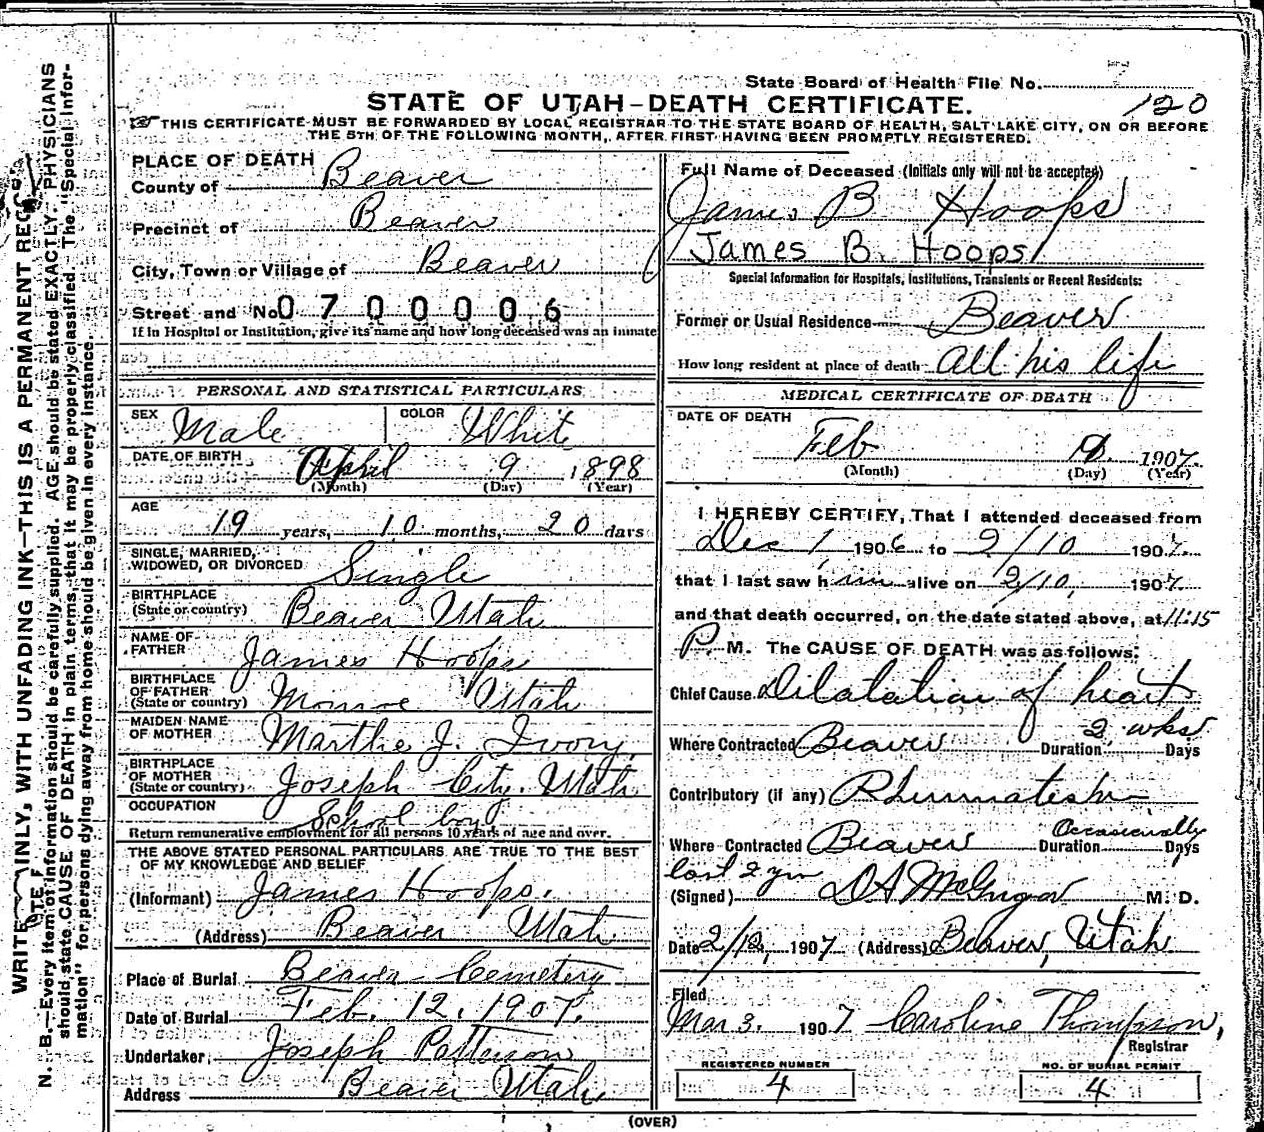 State Board of Health File No.
120
STATE OF UTAH–DEATH CERTIFICATE.
THIS CERTIFICATE MUST BE FORWARDED BY LOCAL REGISTRAR TO THE STATE BOARD OF HEALTH, SALT LAKE CITY, ON OR BEFORE
THE 5TH OF THE FOLLOWING MONTH, AFTER FIRST HAVING BEEN PROMPTLY REGISTERED.
WRITE PLAINLY, WITH UNFADING INK—THIS IS A PERMANENT
N. B.—Every item of information should be carefully supplied. AGE should be stated EXACTLY. PHYSICIANS
should state CAUSE OF DEATH in plain terms, that it may be properly classified. The "Special Infor-
mation" for persons dying away from home should be given in every instance.
PLACE OF DEATH
County of Beaver
Precinct of Beaver
City, Town or Village of Beaver
Street and No. 0700006
If in Hospital or Institution, give its name and how long deceased was an inmate
PERSONAL AND STATISTICAL PARTICULARS
SEX Male COLOR White
DATE OF BIRTH April 9 1898
(Month) (Day) (Year)
AGE
19 years, 10 months, 20 days
SINGLE, MARRIED,
WIDOWED, OR DIVORCED Single
BIRTHPLACE
(State or country) Beaver Utah
NAME OF
FATHER James Hoops
BIRTHPLACE
OF FATHER
(State or country) Monroe Utah
MAIDEN NAME
OF MOTHER Martha J. Ivory
BIRTHPLACE
OF MOTHER
(State or country) Joseph City. Utah
OCCUPATION School boy
Return remunerative employment for all persons 10 years of age and over.
THE ABOVE STATED PERSONAL PARTICULARS ARE TRUE TO THE BEST
OF MY KNOWLEDGE AND BELIEF
(Informant) James Hoops.
(Address) Beaver Utah
Place of Burial Beaver Cemetery
Date of Burial Feb. 12. 1907.
Undertaker Joseph Patterson
Address Beaver Utah
Full Name of Deceased (Initials only will not be accepted)
James B Hoops
James B. Hoops
Special Information for Hospitals, Institutions, Transients or Recent Residents:
Former or Usual Residence Beaver
How long resident at place of death all his life
MEDICAL CERTIFICATE OF DEATH
DATE OF DEATH
Feb 1907.
(Month) (Day) (Year)
I HEREBY CERTIFY, That I attended deceased from
Dec 1 1906 to 2/10 1907.
that I last saw him alive on 2/10, 1907.
and that death occurred, on the date stated above, at 11:15
P. M. The CAUSE OF DEATH was as follows:
Chief Cause Dilatation of heart
Where Contracted Beaver Duration 2 wks Days
Contributory (if any) Rhumatism
Where Contracted Beaver Duration Occasionally Days
last 2 yrs
(Signed) DA McGregor M. D.
Date 2/12, 1907 (Address) Beaver, Utah
Filed
Mar 3. 1907 Caroline Thompson,
Registrar
REGISTERED NUMBER
4
NO. OF BURIAL PERMIT
4
(OVER)